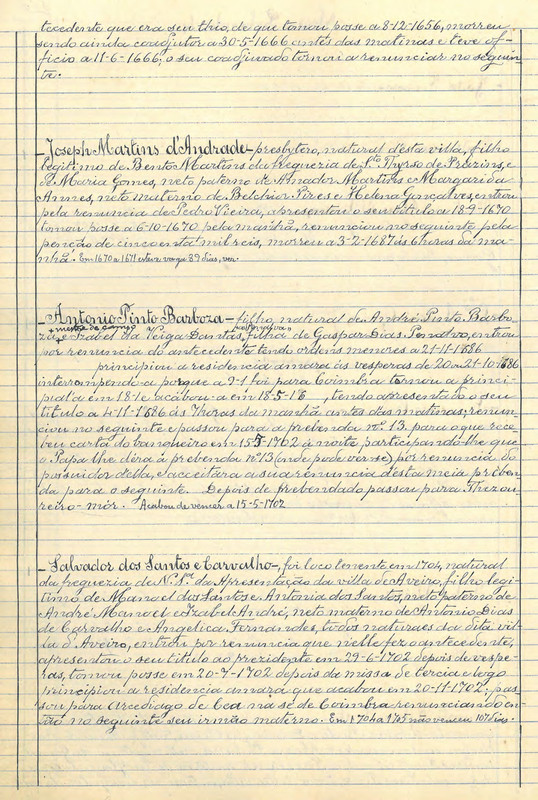 tecedente que era seu thio, de que tomou posse a 8-12-1656, morreu
sendo ainda coadjutor a 30-5-1666 antes das matinas e teve of-
ficio a 11-6-1666; o seu coadjuvado tornou a renunciar no seguin-
te.
Joseph Martins d'Andrade - presbytero, natural d'esta villa, filho
legitimo de Bento Martins da freguezia de Sto Thyrso de Prazins, e
de Maria Gomes, neto paterno de Amador Martins e Margarida
Annes, neto materno de Belchior Pires e Helena Gonçalves, entrou
pela renuncia de Pedro Vieira, apresentou o seu titulo a 18-9-1670
tomou posse a 6-10-1670 pela manhã, renunciou no seguinte pela
penção de cincoenta mil reis, morreu a 3-2-1687 ás 6 horas da ma-
nhã. Em 1670 a 1671 esteve vago 89 dias,
Antonio Pinto Barboza - filho, natural de André Pinto Barbo-
mestre de campo
za, e Izabel da Veiga Dantas, filha de Gaspar Dias Penalvo, entrou
por renuncia do antecedente tendo ordens menores a 21-11-1686
principiou a residencia amara ás vesperas de 20 ou 21-10-1686
interrompendo-a porque a 9-1 foi para Coimbra tornou a princi-
pial-a em 18 e acabou-a em 18-5-18 , tendo apresentado o seu
titulo a 4-11-1686 ás 7 horas da manhã antes das matinas; renun-
ciou no seguinte e passou para a prebenda nº 13 para o que rece-
beu carta do banqueiro em 15-5-1702 á noite, participando-lhe que
o Papa lhe déra á prebenda nº 13 (onde pode vêr-se) por renuncia do
possuidor della, e aceitára a sua renuncia d'esta meia preben-
da para o seguinte. Depois de prebendado passou para Thezou-
reiro-mór. Acabou de vencer a 15-5-1702
Salvador dos Santos e Carvalho -, foi loco tenente em 1704, natural
da freguezia de N. Srª da Apresentação da villa de Aveiro, filho legi-
timo de Manoel dos Santos e Antonia dos Santos, neto paterno de
André Manoel e Izabel André, neto materno de Antonio Dias
de Carvalho e Angelica Fernandes, todos naturaes da dita vil-
la d'Aveiro, entrou por renuncia que nelle fez o antecedente,
apresentou o seu titulo ao prezidente em 29-6-1702 depois de vespe-
ras, tomou posse em 20-7-1702 depois da missa de tercia e logo
principiou a residencia amara que acabou em 20-11-1702; pas-
sou para arcediago de Cea na sé de Coimbra renunciando en-
tão no seguinte seu irmão materno. Em 1704 a 1705 não venceu 107 dias.